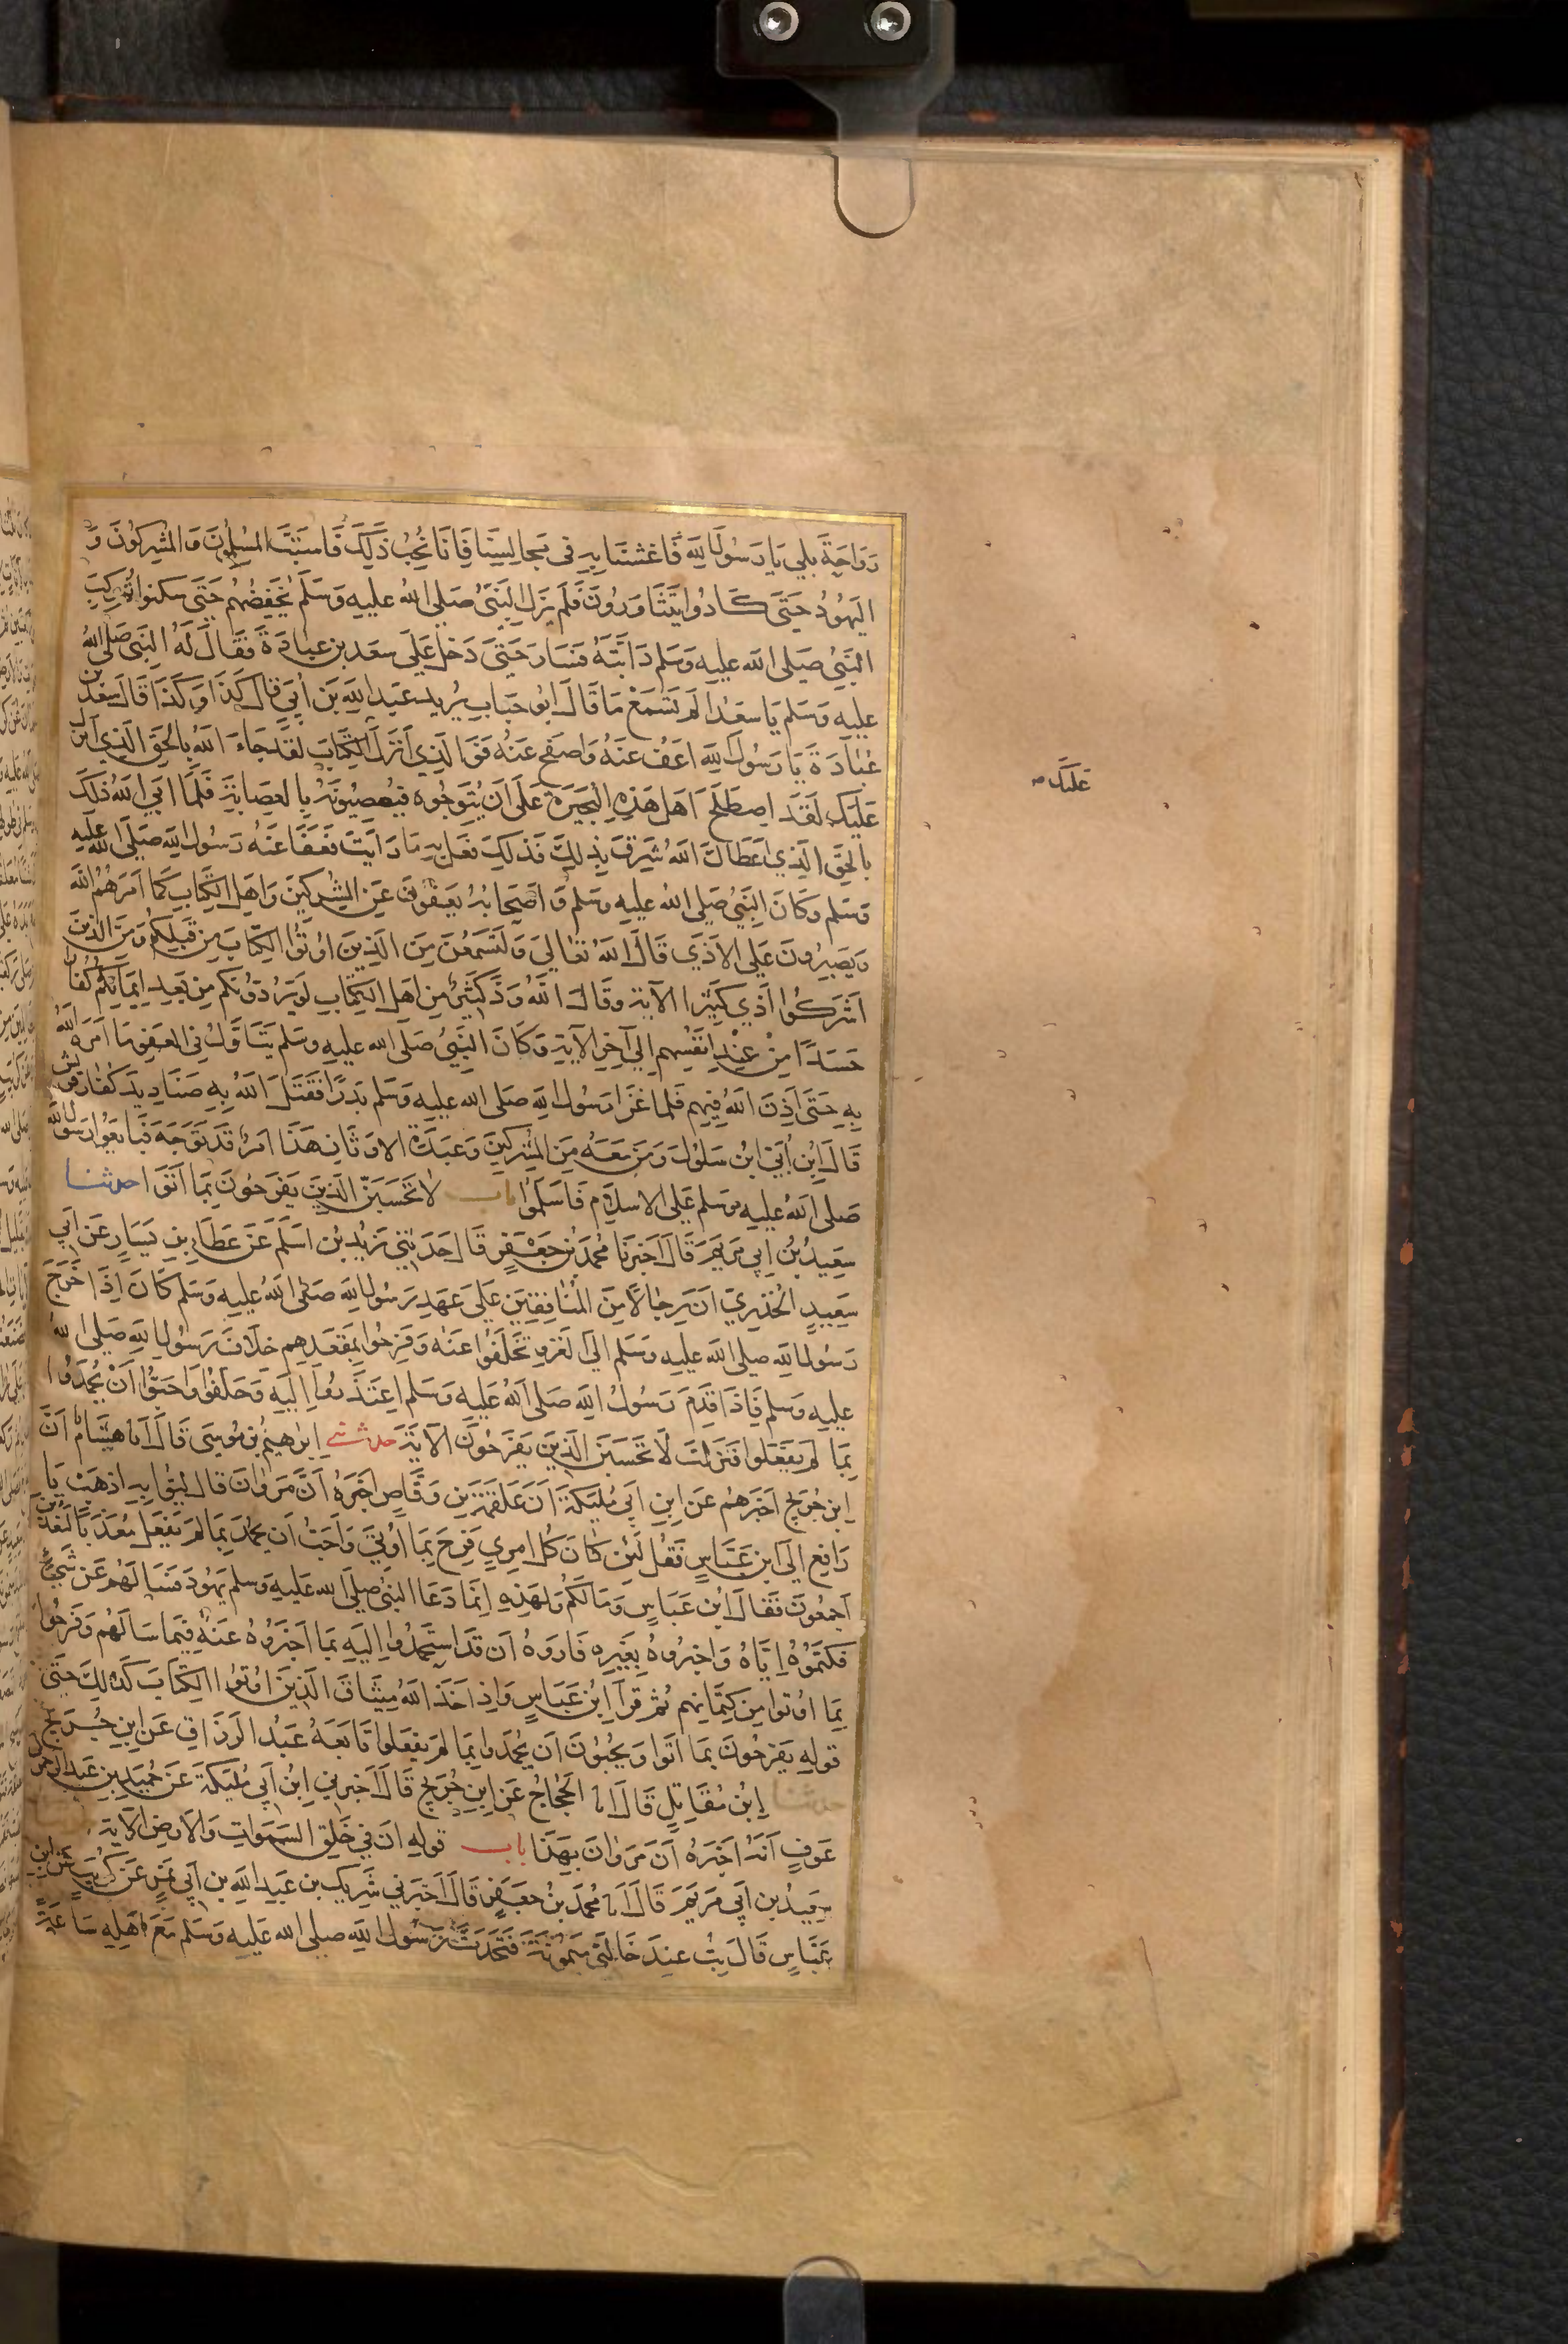 رَوَاحَةَ بلي يَا رَسُولَ اللهِ فَاغشنَا بِهِ فى مجالِسِنَا فَإنَا نُحِبُ ذَلِكَ فَاستَبَّ المسْلِمُونَ وَ المشْرِكُونَ وَ
اليَهُودُ حَتَى كَادُوا يَتَثَاوَرُونَ فَلَم يَزَلِ النَبيُ صَلى اللهُ عليهِ وَسَلَم يُخَفِضُهُم حَتَى سَكنوا ثُم رَكِبَ
النَبيُ صَلى الله عليهِ وَسَلم دَابَّتَهُ فسَارَ حَتَى دَخَل عَلَى سعَد بن عبَادَةَ فقَالَ لَهُ النَبي صَلى اللهُ
عليهِ وَسَلم يَا سعَد الَم تسَمَعْ مَا قَالَ ابُو حبَابٍ يُريد عبَد اللهِ بَن أُبَي قال كَذَا وَ كَذَا قَالَ سعَد بن
عُبَادَةَ يَا رَسُولَ اللهِ اعَفُ عَنهُ وَاصفَح عَنهُ فَوَالَذِي أَنزَلَ الكِتَابَ لقَد جَاءَ اللهُ بالحَق الَذِي انزل
عَليَكَ لَقَد اصطَلَحَ اهَل هَذِهِ البُحَيرَة عَلَى ان يُتوِجُوه فيُعصِبُونَهُ بِالعِصَابَةِ فَلَمَّا ابَي اللهُ ذلكَ
بالحَق الَذِي اعَطَاكَ اللهُ شَرِقَ بِذلِكَ فذَلكَ فعَل بِهِ مَا رَايَت فعَفَا عَنهُ رَسُولُ اللهِ صَلَى الله عليه
وَسَلم وَكَانَ النَبيُ صَلى اللهُ عليهِ وَسَلم وَاصَحَابُهُ يَعفُونَ عَنِ المشركينَ وَاهلِ الكِتَابِ كَمَا امَرَهُمُ الله
وَيَصبِرُونَ عَلى الاذَي قَالَ اللهُ تعَاليَ وَلَتَسمَعُنَ مِنَ الَذِينَ اوُتوُا الكِتَابَ مِن قَبلِكُم وَمِنَ الَذِينَ
اشَرَكُوا اَذَي كَثِيرًا الآيَة وقَالَ اللهُ وَدَّ كَثِيرٌ مِن اهَلِ الكِتَابِ لَو يَرُدُونَكم مِن بَعدِ إِيمَانِكُم كُفَارًا
حَسَدًا مِنْ عِنْدِ انَفُسِهِم إلي آخِرِ الآيَةِ وَكَانَ النَبيُ صَلى الله عليهِ وَسَلم يَتَاوَّلُ في العَفوِ مَا امَرَهُ اللهُ
بِهِ حَتَى أَذِنَ اللهُ فِيهِم فَلما غَزَا رَسُولُ اللهِ صَلى الله عليهِ وَسَلم بَدرًا فقَتَلَ اللهُ بِهِ صَنَادِيدَ كُفَارِ قُريش
قَالَ ابُن أُبَي ابُن سَلوُلَ وَمَن مَعَهُ مِنَ المشرِكِينَ وَعبَدَةِ الاوَثَانِ هَذَا امرٌ قَد تَوَجَهَ فَبَايعَوُا رَسُولَ الله
صَلى اللهُ عليهِ وسَلم عَلى الاِسلَامِ فَاسَلَمُوا باب لَا تَحْسَبَنَّ الذَينَ يَفرَحُونَ بِمَا اتَوَا حدثنا
سَعِيدُ بُنُ ابِي مَريَمَ قَالَ اخَبرَنَا مُحَمَدُ بنُ جَعْفَرٍ قَالَ حَدَثنِي زَيُد بُن اسَلَمَ عَن عَطَاء بنِ يَسَارٍ عَن ابَي
سَعِيدٍ الخُدرِيّ انَ رِجَالًا مِنَ المُنَافِقِينَ عَلَى عَهدِ رَسُولِ اللهِ صَلى اللهُ عليهِ وَسَلم كَانَ اِذَا خَرَجَ
رَسُولُ اللهِ صَلى الله عليهِ وَسَلم إلى الغَزوِ تَخَلَفُوا عَنهُ وَفَرِحُوا بِمَقعَدِهِم خلَافَ رَسُولِ اللهِ صَلى اللهُ
عليهِ وَسَلم فَاِذَا قَدِمَ رَسُولُ اللهِ صَلى اللهُ عَليهِ وَسَلم اعتَذَرُوا إليَهِ وَحلَفُوا وَاحَبُّوا أنْ يُحمَدُوا
بِمَا لَم يفَعَلُوا فنَزلَت لَا تَحْسَبَنَ الذَينَ يَفرَحُونَ الآيَةَ حدثني ابرَهِيمُ بنُ مُوسَى قَالَ انَا هشَامٌ انَ
ابنَ جُرَيجٍ اخَبَرَهُم عَن ابنِ ابَي مُلَيكَةَ انَ عَلقَمَةَ بنِ وَقَّاصٍ اخَبَرَهُ انَّ مَروَانَ قَال لبَوَّابِهِ اذهَبْ يَا
رَافِع إلَى ابنِ عَبَّاسٍ فَقُل لَئِن كَانَ كُل امرِيٍ فَرِحَ بِمَا أوُتيَ وَاحَبَّ ان يُحمَدَ بِمَا لَم يَفعَل مُعَذَبًا لنُعَذَبَن
اجمَعُونَ فَقَالَ ابُن عَبَاسٍ وَمَا لَكُم وَلهَذِهِ اِنمَا دَعَا النَبيُ صَلى الله عليهِ وسَلم يَهُودَ فسَالَهُم عَن شَيءٍ
فكَتَمُوهُ اِيَّاهُ وَاخبَرُوهُ بِغَيرِه فَارَوهُ ان قَد استَحمَدُوا اِليَهِ بمَا اخَبَرُوهُ عَنهُ فِيمَا سَالَهُم وَفَرِحُوا
بِمَا اوُتوا مِن كِتمَانِهِم ثُمَ قرَأ ابُن عَبَاسٍ وَاِذ اخَذَ اللهُ مِيثَاقَ الَذِينَ اوُتوُا الكِتَابَ كَذلكَ حَتَى
قولهِ يَفرَحُونَ بمَا اتَوا وَيُحِبُّونَ ان يُحمَدُوا بِمَا لَم يَفعَلوا تَابَعَهُ عَبُد الرَزَاقِ عَن ابنِ جُرَيجٍ
حدثنا ابُن مُقَاتِلٍ قَالَ انا الحَجُاجُ عَن ابنِ جُرَيجٍ قَالَ اخَبرنيِ ابُن ابَي مُليَكَةَ عَن حُميَدِ بنِ عَبد الرحمن بن
عَوفٍ انَهُ اخَبَرَهُ انَ مَروَانَ بِهَذَا باب قولهِ ان في خَلقِ السَمَوَاتِ وَالارضِ الآيَة
سَعِيدُ بن ابَي مَريَمَ قَالَ انا مُحمَدُ بنُ جعَفَرٍ قَالَ اخَبرَني شَرِيك بن عَبدِ اللهِ بنِ ابَي نَمِرٍ عَن كُرَيبٍ عَن ابنِ
عَبَّاسٍ قَالَ بِتُ عِندَ خَالَتي مَيمُونَةَ فَتَحَدَثَ رَسُولُ اللهِ صلى الله عَليهِ وَسَلم مَعَ اهَلِهِ سَاعَةً
عَليَكَ صح